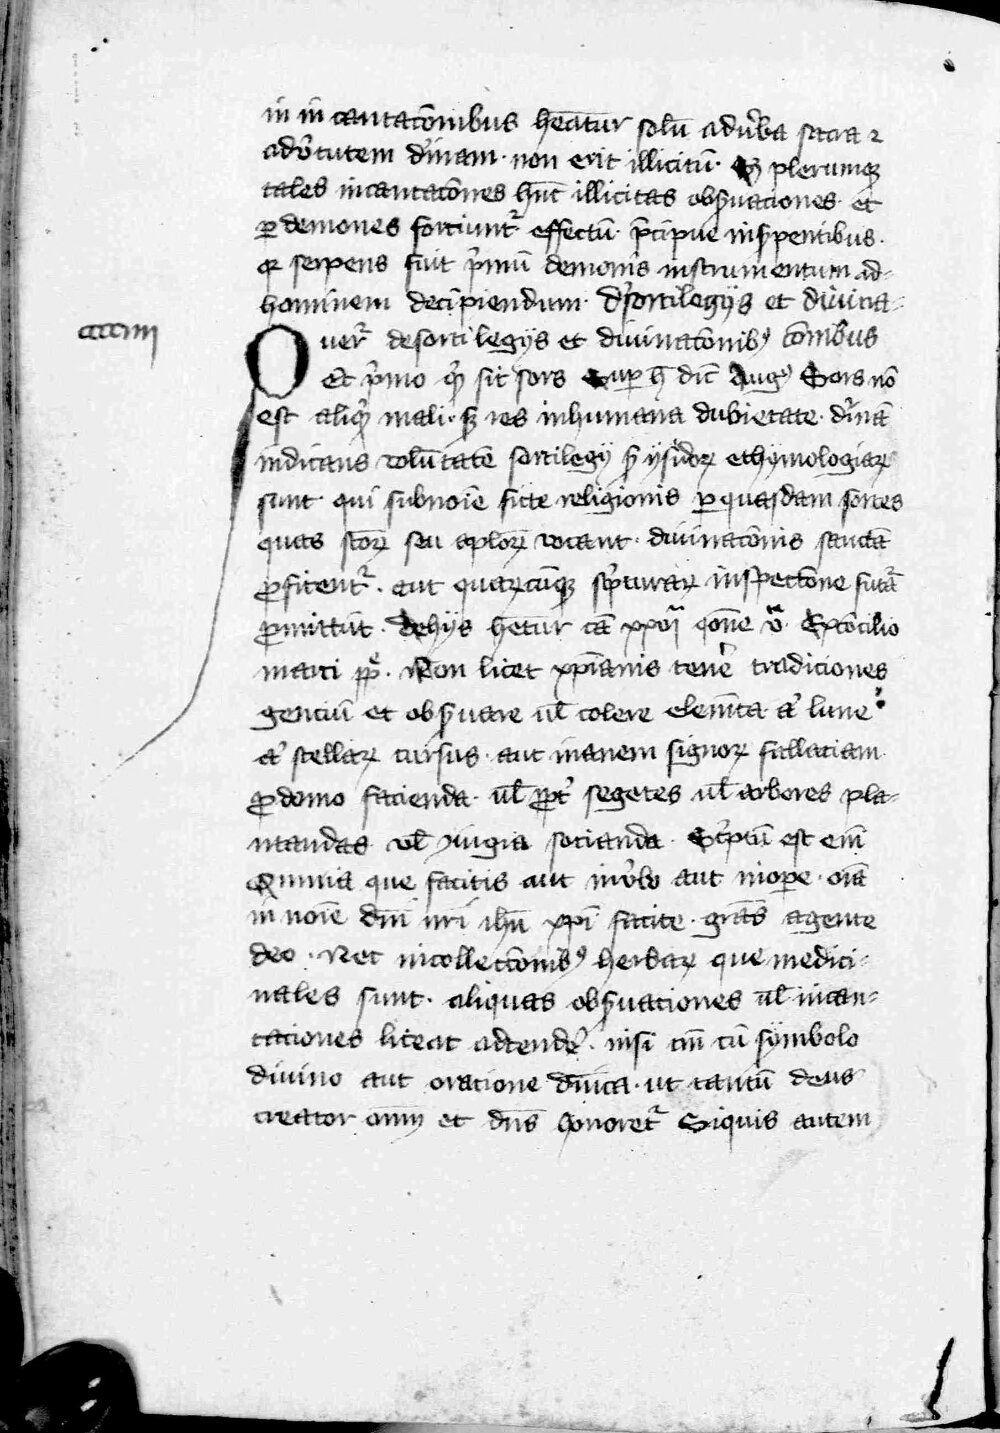 in incantacõnibus heatur solũ ad uͥba sacra ⁊
ad v̓tutem diuinam · non erit illicitũ · Sꝫ plerumqꝫ
tales incantacõnes hñt illicitas obẜuaciones et
ꝑ demones sorciunt᷑ effectũ · p̃cipue in ẜpentibus ·
qꝛ serpens fuit p̓mũ demonis instrumentum ad-
hominem decipiendum · De sortilegijs et diuina-
cccciiii
Quer᷑ de sortilegijs et diuinacõnibꝰ cõnibus
Et p̓mo qͥd sit sors Super qͦ dic̃ Augꝰ Sors nõ
est aliqͥd mali · sꝫ res in humana dubietate · diuinã
indicans volũtatẽ sortilegij ẜm ysidoꝝ ethymologiaꝝ
sunt qui sub noĩe ficte religionis ꝑ quasdam sortes
quas sc̃oꝝ seu ap̃loꝝ vocant · diuinacõnis sciẽtiã
ꝓfitent᷑ · aut quaꝝcũqꝫ sc̓pturaꝝ inspectõne futã
ꝓmittũt · De hijs hetur cã xxvi q̃one v · Ex cõcilio
marci pp̃ · Non licet xp̃ianis tenẽ tradiciones
genciũ et obẜuare ul̃ colere elem̃ta aͭ lune
aͭ stellaꝝ cursus · aut inanem signoꝝ fallaciam
ꝓ domo facienda · ul̃ ꝓpt̓ segetes ul̃ arbores pla-
ntandas vel̃ 9iugia socianda · Sc̓ptũ est em̃
Omnia que facitis aut in v̓bo aut in opere · oĩa
in noĩe dñi nr̃i ihũ xp̃i facite · gr̃as agente
deo · Nec in collectõnibꝰ herbaꝝ que medici-
nales sunt · aliquas obẜuaciones ul̃ incan-
taciones liceat adtendẽ · nisi tm̃ cũ symbolo
diuino aut oratione dñica · ut tantũ deus
creator oĩm et dñs honoret᷑ Si quis autem